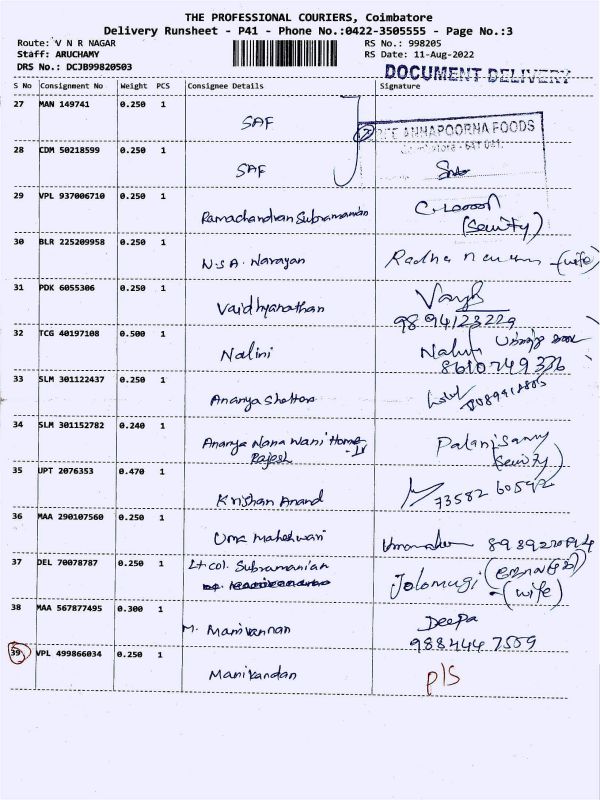 THE PROFESSIONAL COURIERS, Coimbatore
Delivery Runsheet - P41 - Phone No.:0422-3505555 - Page No.:3
Route: V N R NAGAR
RS No.: 998205
Staff: ARUCHAMY
RS Date: 11-Aug-2022
DRS No.: DCJB99820503
DOCUMENT DELIVERY
S No Consignment No Weight PCS Consignee Details Signature
27 MAN 149741 0.250 1 SAF
ANNAPOORNA FOODS
28 CDM 50218599 0.250 1 SAF
29 VPL 937006710 0.250 1 Ramachandran Subramanian
30 BLR 225209958 0.250 1 N.S.A. Narayan Radha (wife)
31 PDK 6055306 0.250 1 Vaidhyanathan
9894123229
32 TCG 40197108 0.500 1 Nalini
8610749336
33 SLM 301122437 0.250 1 Ananya Shelters
34 SLM 301152782 0.240 1 Ananya Nana Nani Home Palanisamy
Rajesh
35 UPT 2076353 0.470 1 Krishan Anand 73582 60592
36 MAA 290107560 0.250 1 Uma Maheswari
37 DEL 70078787 0.250 1 Lt col. Subramanian
(wife)
38 MAA 567877495 0.300 1 M. Manivannan Deepa
9884447559
39 VPL 499866034 0.250 1 Manikandan P/S